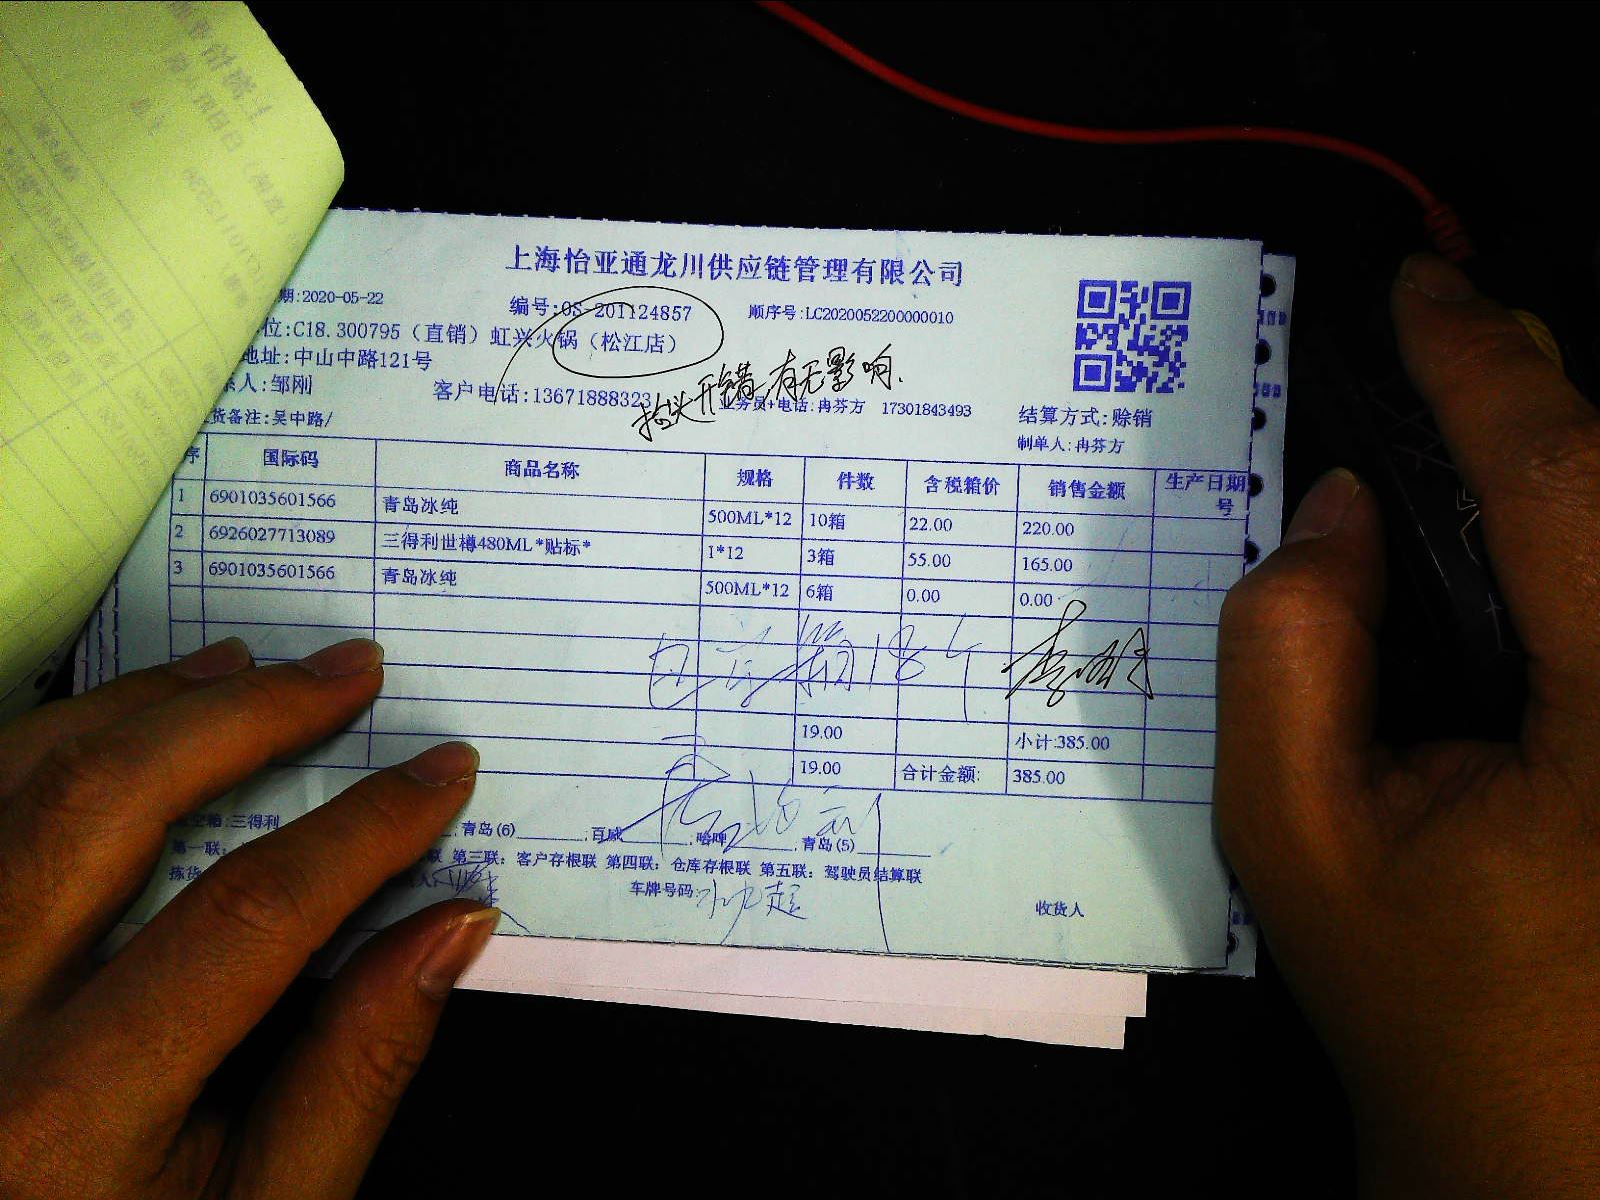 上海怡亚通龙川供应链管理有限公司
期:2020-05-22 编号:OS-201124857 顺序号:LC2020052200000010
位:C18.300795（直销）虹兴火锅（松江店）
地址:中山中路121号
系人:邹刚 客户电话:13671888323 业务员+电话:冉芬方 17301843493 结算方式:赊销
抬头开错 有无影响.
货备注:吴中路/ 制单人:冉芬方
序 国际码 商品名称 规格 件数 含税箱价 销售金额 生产日期号
1 6901035601566 青岛冰纯 500ML*12 10箱 22.00 220.00
2 6926027713089 三得利世樽480ML*贴标* 1*12 3箱 55.00 165.00
3 6901035601566 青岛冰纯 500ML*12 6箱 0.00 0.00
箱18个
19.00 小计:385.00
19.00 合计金额: 385.00
空箱:三得利 ;青岛(6) ;百威 ;哈啤 ;青岛(5)
第一联: 联 第三联：客户存根联 第四联：仓库存根联 第五联：驾驶员结算联
拣货 车牌号码: 收货人